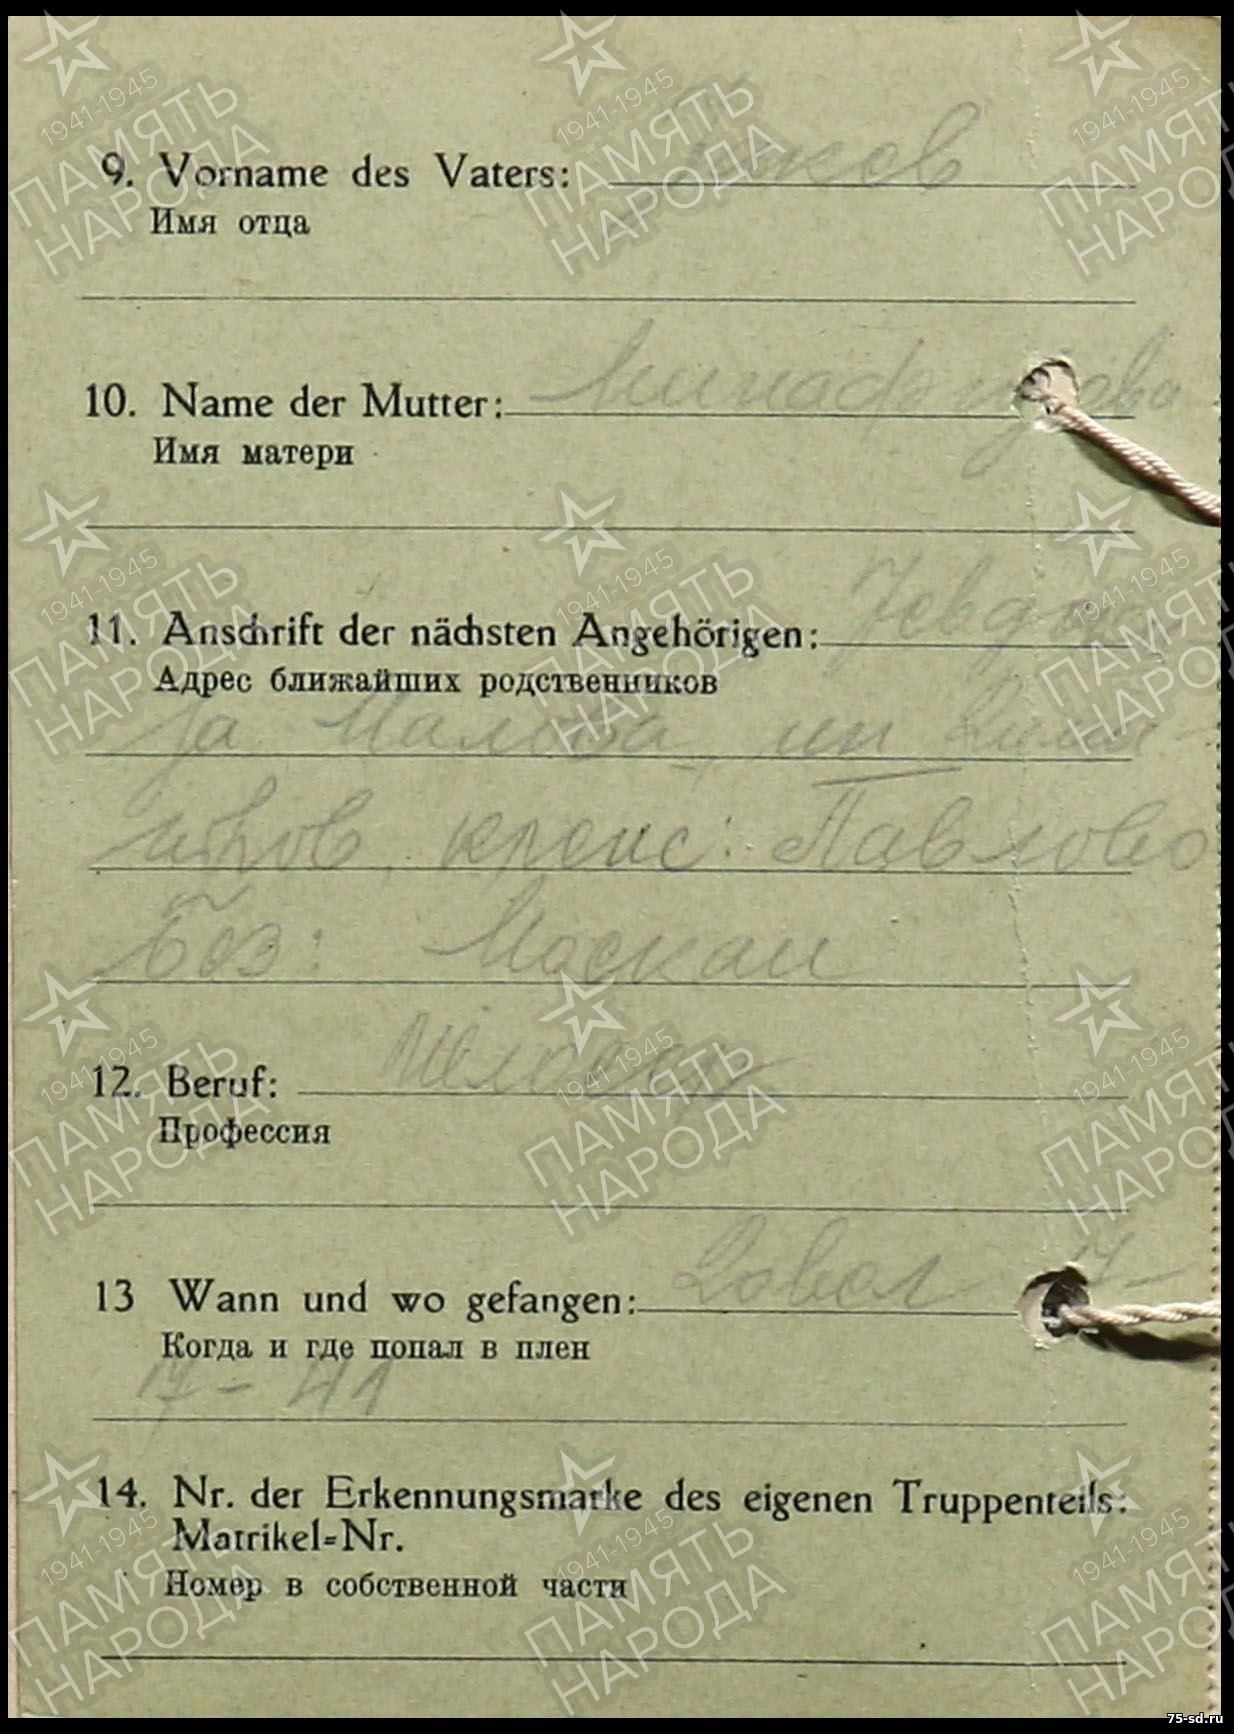 9. Vorname des Vaters: Яков
Имя отца
10. Name der Mutter:
Имя матери
11. Anschrift der nächsten Angehörigen:
Адрес ближайших родственников
за Малова, ул
креис: Павлово
Без: Москаи
12. Beruf:
Профессия
13 Wann und wo gefangen: 17-
Когда и где попал в плен
7-41
14. Nr. der Erkennungsmarke des eigenen Truppenteils:
Matrikel=Nr.
Номер в собственной части
1941-1945
ПАМЯТЬ
НАРОДА
75-sd.ru